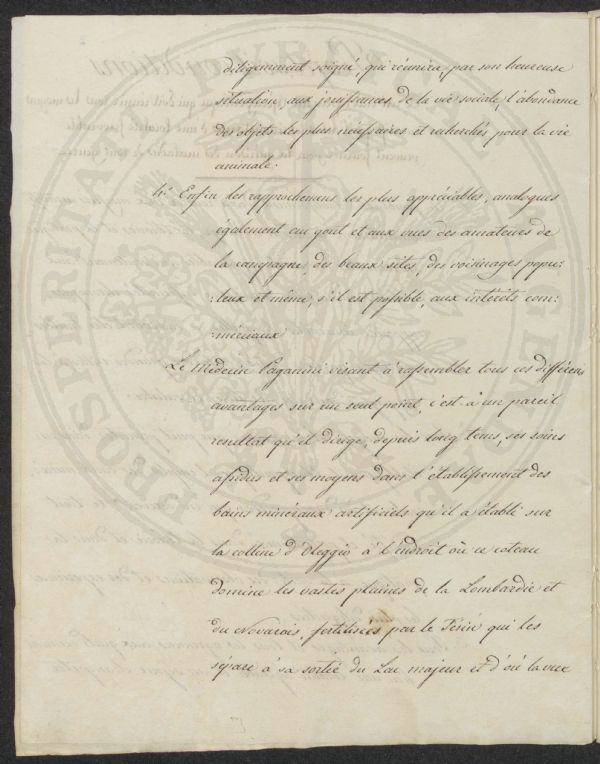 diligemment soigné, qui réunira, par son heureuse
situation, aux jouissances de la vie sociale, l'abondance
des objets les plus nécessaires et recherchés pour la vie
animale.
4.° Enfin les rapprochemens les plus appréciables, analogues
également au gout et aux vues des amateurs de
la campagne, des beaux sites, des voisinages popu:
:leux et même, s'il est possible, aux intérêts com:
:merciaux
Le Médecin Paganini visant à rassembler tous ces différens
avantages sur un seul point, c'est à un pareil
resultat qu'il dirige, depuis long tems, ses soins
assidus et ses moyens dans l'établissement des
bains minéraux artificiels qu'il à établi sur
la colline d'Oleggio à l'endroit où ce coteau
domine les vastes plaines de la Lombardie et
du Novarais, fertilisées par le Tésin qui les
sépare à sa sortie du Lac majeur et d'où la vue
PROSPERITA